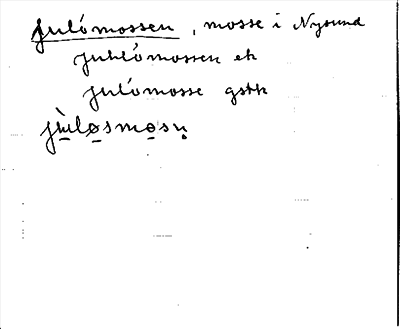 Julómossen, mosse i Nysund
Juhlómossen ek
Julómosse gskk
jùləsmosṇ